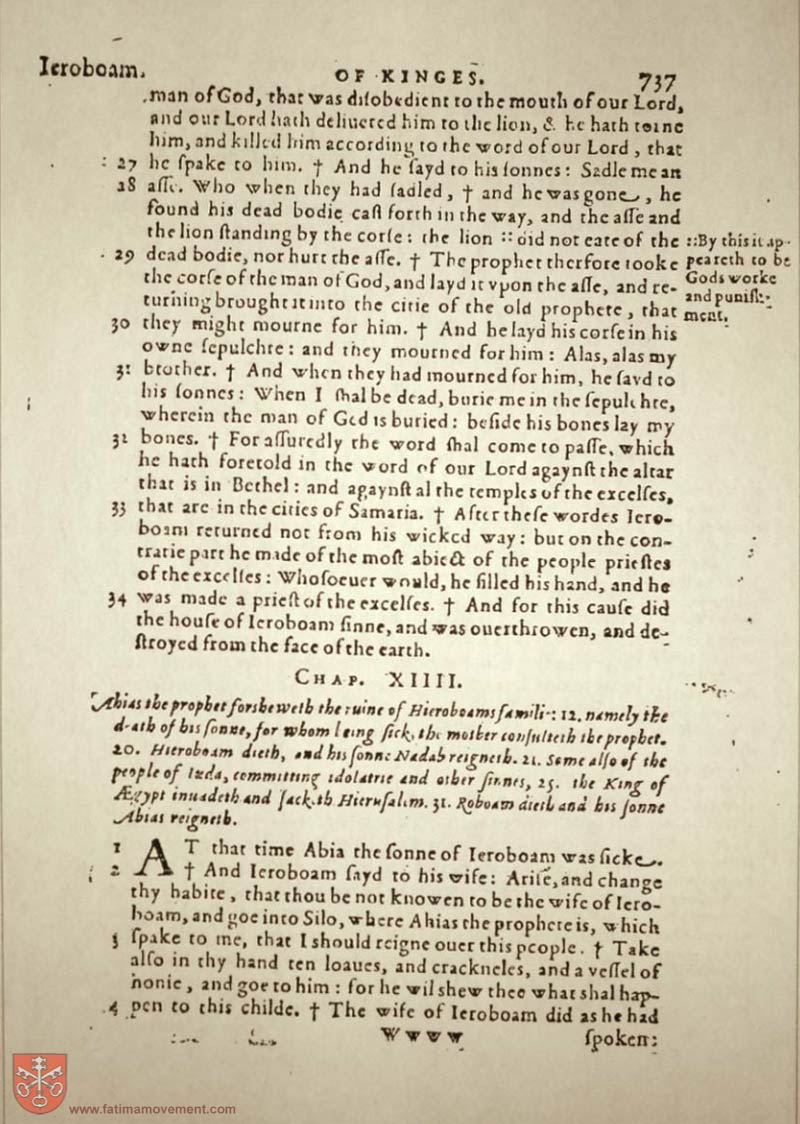 Ieroboam.
OF KINGES.
737
man of God, that was disobedient to the mouth of our Lord,
and our Lord hath deliuered him to the lion, & he hath torne
him, and killed him according to the word of our Lord, that
27 he spake to him. † And he sayd to his sonnes: Sadle me an
28 asse. Who when they had sadled, † and he was gone, he
found his dead bodie cast forth in the way, and the asse and
the lion standing by the corse: the lion :: did not eate of the
29 dead bodie, nor hurt the asse. † The prophet therfore tooke
the corse of the man of God, and layd it vpon the asse, and re-
turning brought it into the citie of the old prophete, that
30 they might mourne for him. † And he layd his corse in his
owne sepulchre: and they mourned for him: Alas, alas my
31 brother. † And when they had mourned for him, he sayd to
his sonnes: When I shal be dead, burie me in the sepulchre,
wherein the man of God is buried: beside his bones lay my
32 bones. † For assuredly the word shal come to passe, which
he hath foretold in the word of our Lord agaynst the altar
that is in Bethel: and agaynst al the temples of the excelses,
33 that are in the cities of Samaria. † After these wordes Iero-
boam returned not from his wicked way: but on the con-
trarie part he made of the most abiect of the people priestes
of the excelses: Whosoeuer would, he filled his hand, and he
34 was made a priest of the excelses. † And for this cause did
the house of Ieroboam sinne, and was ouerthrowen, and de-
stroyed from the face of the earth.
::By this it ap-
peareth to be
Gods worke
and punish-
ment.
CHAP. XIIII.
Ahias the prophet forsheweth the ruine of Hieroboams familie: 12. namely the
death of his sonne, for whom being sick, the mother consulteth the prophet.
20. Hieroboam dieth, and his sonne Nadab reigneth. 21. Some also of the
people of Iuda, committing idolatrie and other sinnes, 25. the King of
Ægypt inuadeth and sacketh Hierusalem. 31. Roboam dieth and his sonne
Abias reigneth.
1 AT that time Abia the sonne of Ieroboam was sicke.
2 † And Ieroboam sayd to his wife: Arise, and change
thy habite, that thou be not knowen to be the wife of Iero-
boam, and goe into Silo, where Ahias the prophete is, which
3 spake to me, that I should reigne ouer this people. † Take
also in thy hand ten loaues, and crackneles, and a vessel of
honie, and goe to him: for he wil shew thee what shal hap-
4 pen to this childe. † The wife of Ieroboam did as he had
Wwww
spoken:
www.fatimamovement.com